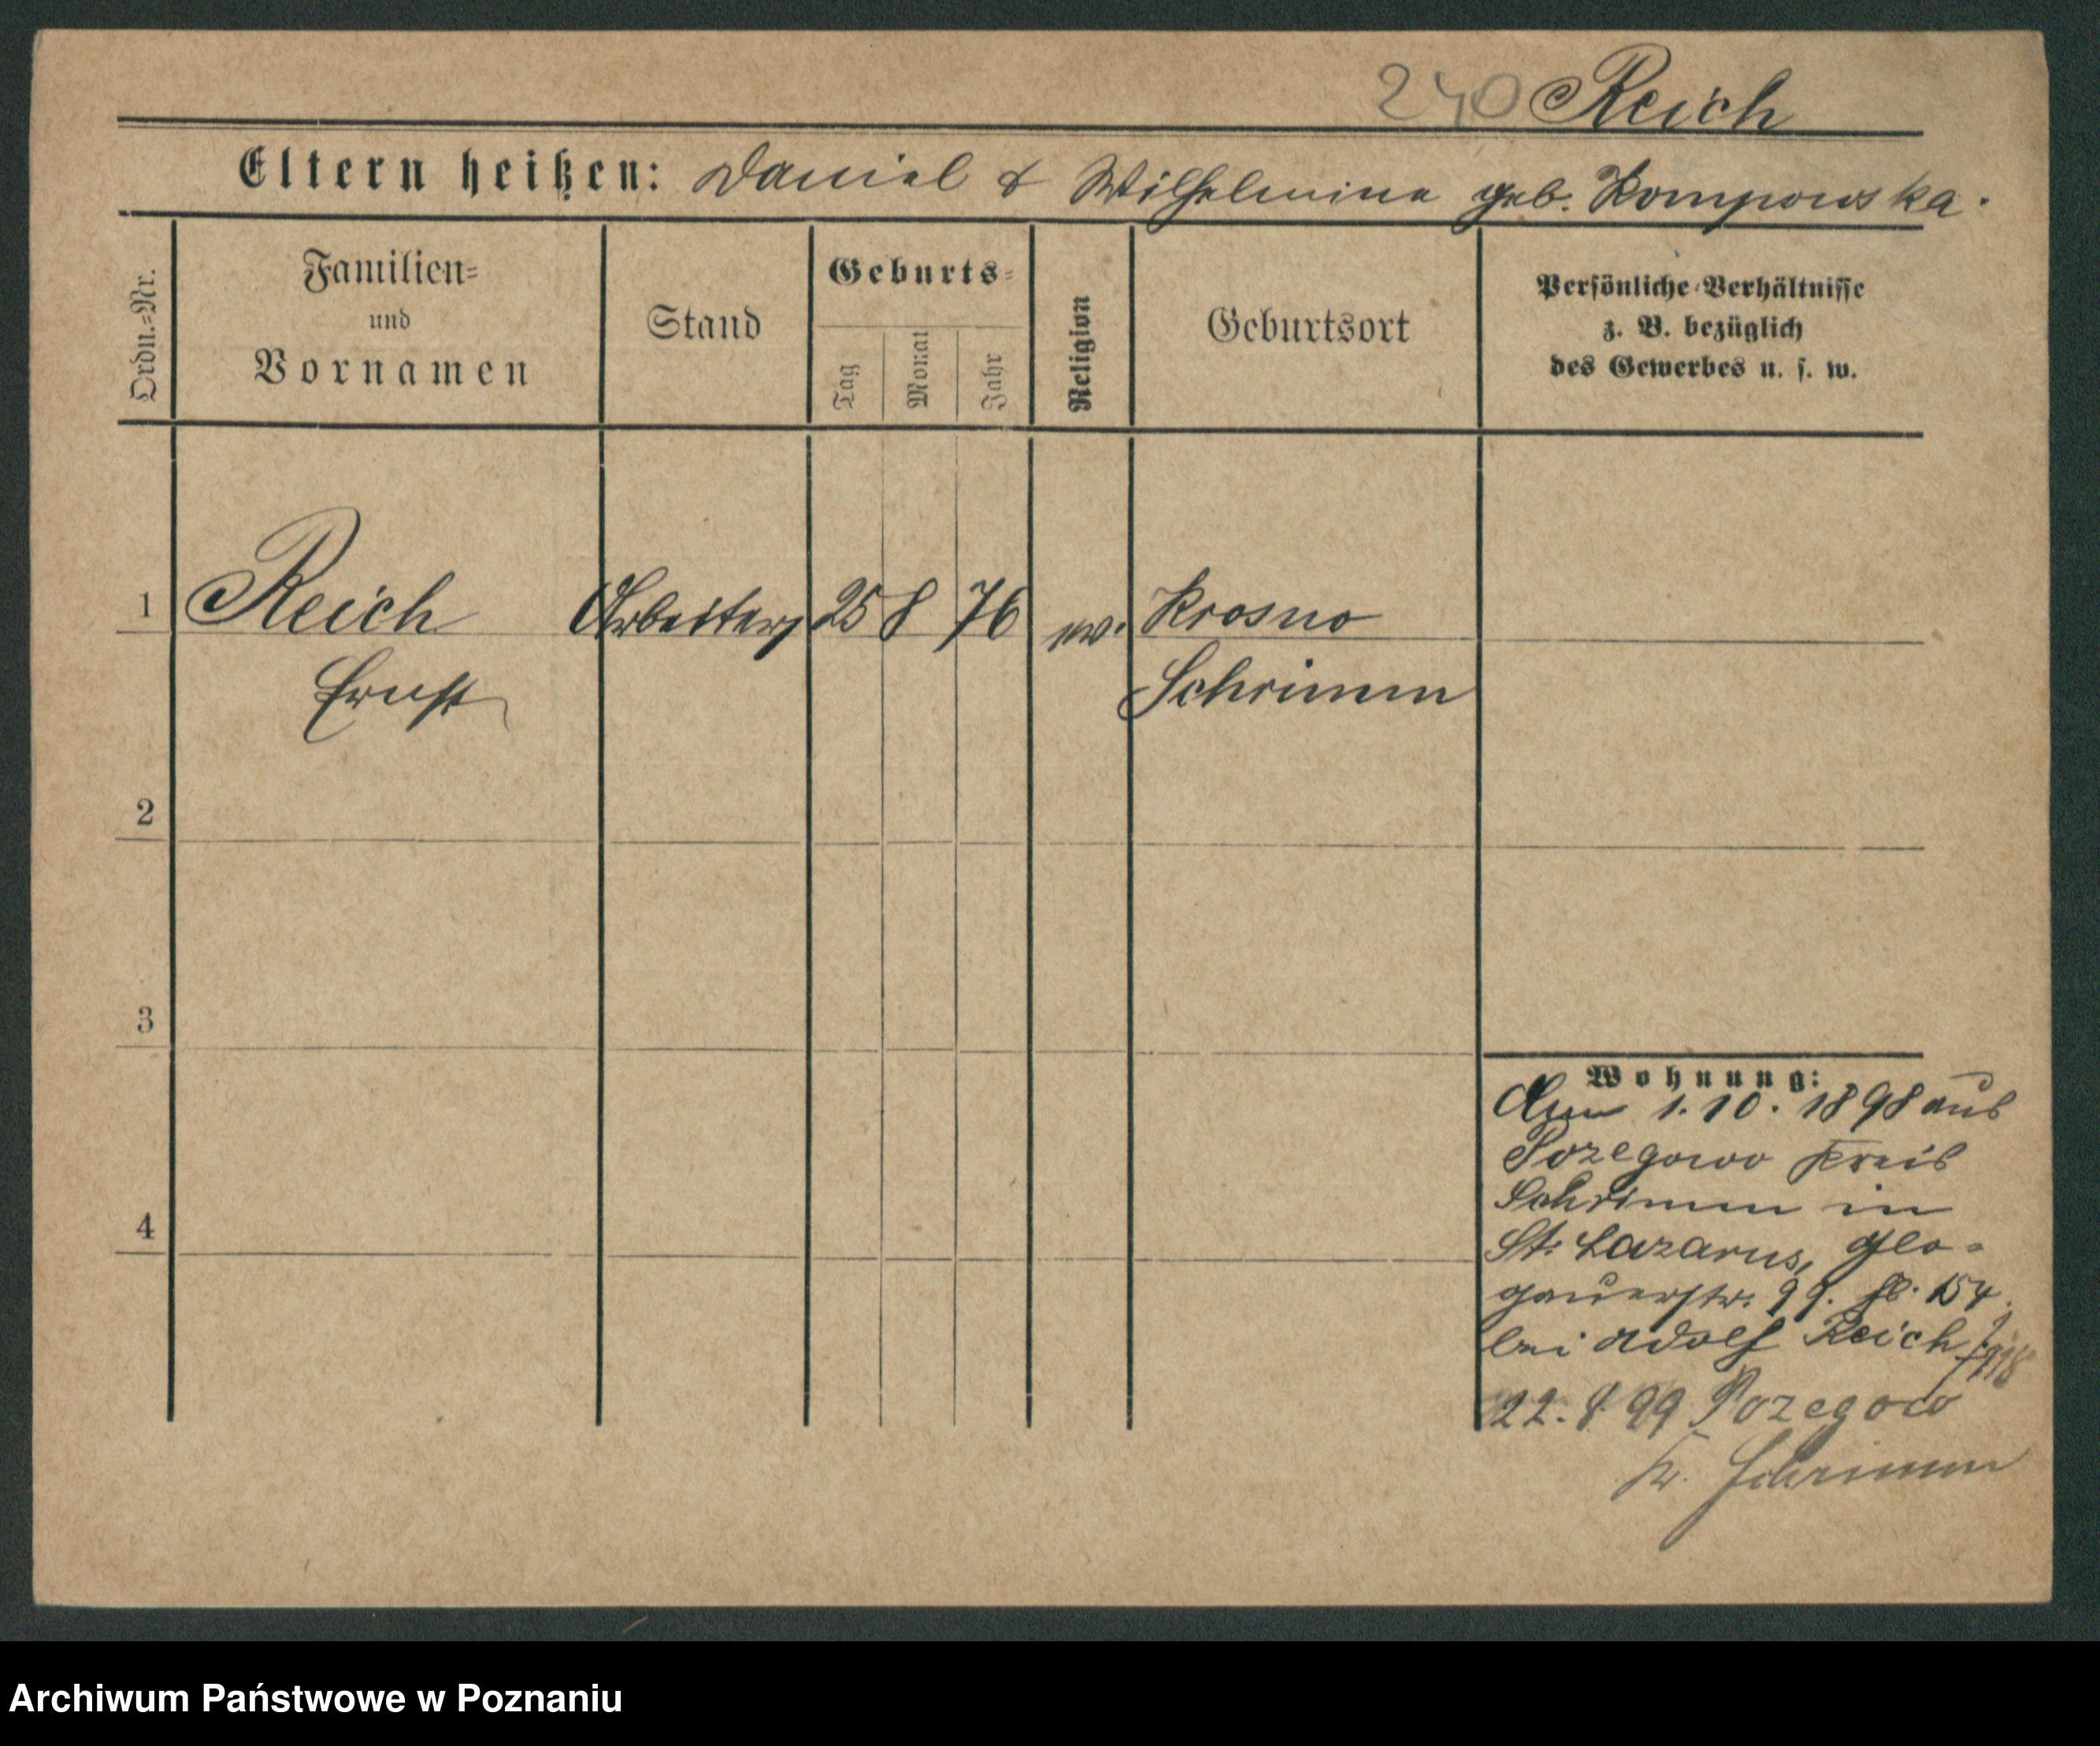 240 Reich
Eltern heißen: Daniel & Wilhelmine geb. Kompowska.
Ordn.-Nr.
Familien-
und
Vornamen
Stand
Geburts-
Tag
Monat
Jahr
Religion
Geburtsort
Persönliche Verhältnisse
z. B. bezüglich
des Gewerbes u. s. w.
1 Reich Arbeiter 25 8 76 ev. Krosno
Ernst Schrimm
2
3
4
Wohnung:
Am 1. 10. 1898 aus
Pozegowo Kreis
Schrimm in
St. Lazarus, Glo-
gauerstr. 99. 154.
bei Adolf Reich
22. 8 99 Pozegowo
Kr. Schrimm
Archiwum Państwowe w Poznaniu